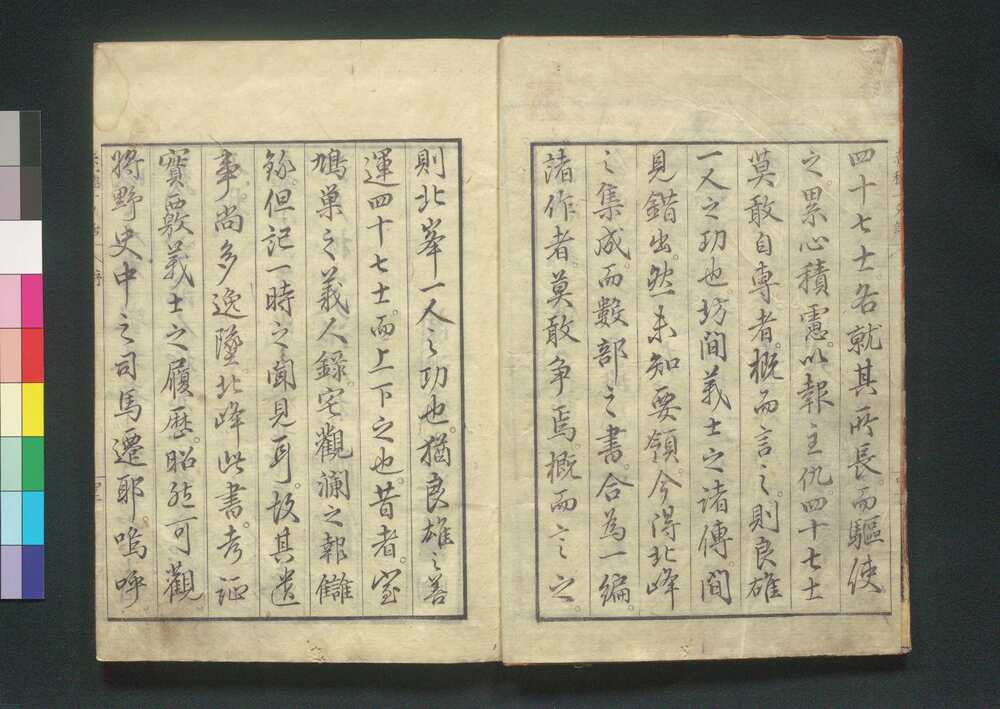 四十七士各就其所長而驅使
之。累心積慮。以報主仇。四十七士
莫敢自專者。概而言之。則良雄
一人之功也。坊間義士之諸傳。間
見錯出。然未知要領。今得北峰
之集成。而數部之書。合為一編。
諸作者莫敢争焉。概而言之。
則北峯一人之功也。猶良雄之善
運四十七士。而上下之也。昔者。室
鳩巣之義人錄。宅觀瀾之報讎
錄。但記一時之聞見耳。故其遺
事。尚多逸墜。北峰此書。考証
實覈。義士之履歷。昭然可觀
將野史中之司馬遷耶。嗚呼